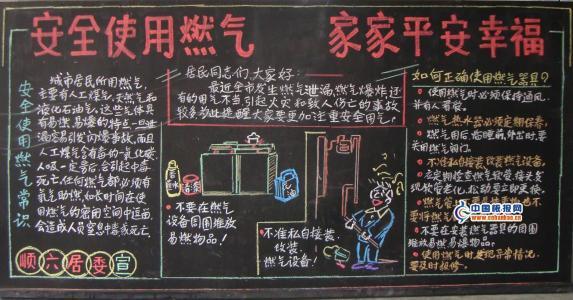 安全使用燃气 家家平安幸福
安全使用燃气常识
城市居民所用燃气,
主要有人工煤气、天然气和
液化石油气。这些气体具
有易燃易爆的特点,一旦泄
漏容易引发闪爆事故,而且
人工煤气含有毒的一氧化碳,
人吸一定量后,会引起中毒
死亡。任何燃气都必须有
氧气助燃,如长时间在使
用燃气的密闭空间中逗留,
会造成人员窒息中毒死亡。
顺六居委宣
居民同志们,大家好:
最近全市发生燃气泄漏,燃气爆炸,还
有的用气不当引起火灾和致人伤亡的事故
较多,为此提醒大家要更加注重安全用气。
不要在燃气
设备周围堆放
易燃物品!
不准私自接装、
改装、
燃气设备!
如何正确使用燃气器具?
使用燃气时必须保持通风,
并有人看管。
燃气热水器必须定期保养。
燃气用后、临睡前、外出时,要
关闭燃气阀门。
不准私自接装改装燃气设备。
定期检查燃气软管接头发
现软管老化、松动要立即更换。
要将燃气
不要在安装燃气器具的周围
堆放易燃易爆物品。
使用燃气时发现异常情况,
要及时报修。
中国板报网